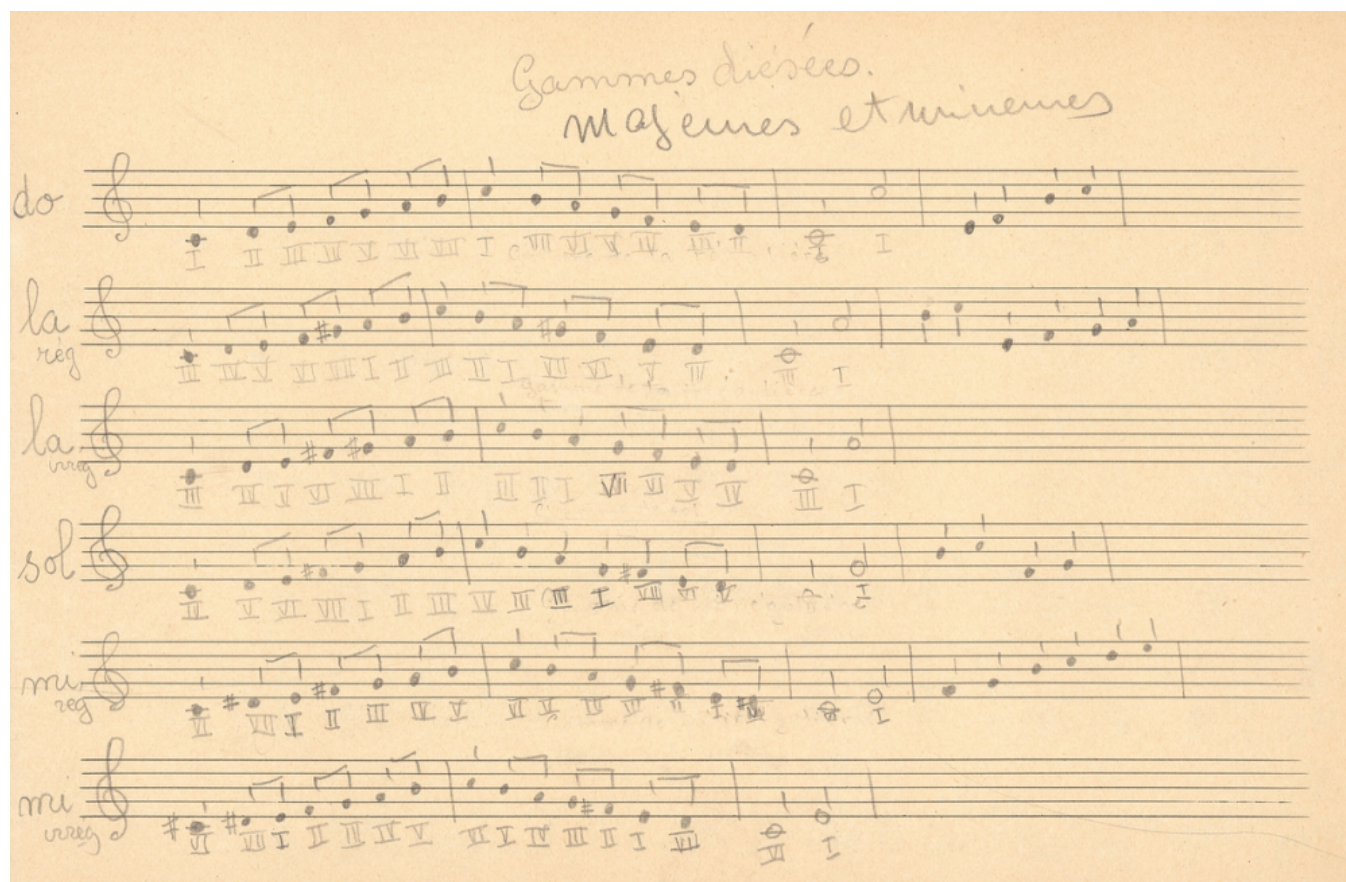 Gammes diésées.
Majeures et mineures
do
I II III IV V VI VII I VII VI V IV III II I I
la
rég
III IV V VI VII I II III II I VII VI V III I
la
irreg
III IV V VI VII I II III II I VII VI V IV III I
sol
IV V VI VII I II III IV III III I VII VI V I
mi
reg
VI VII I II III IV V VI V IV III II I VII VI I
mi
irreg
VI VII I II III IV V VI V IV III II I VII VI I